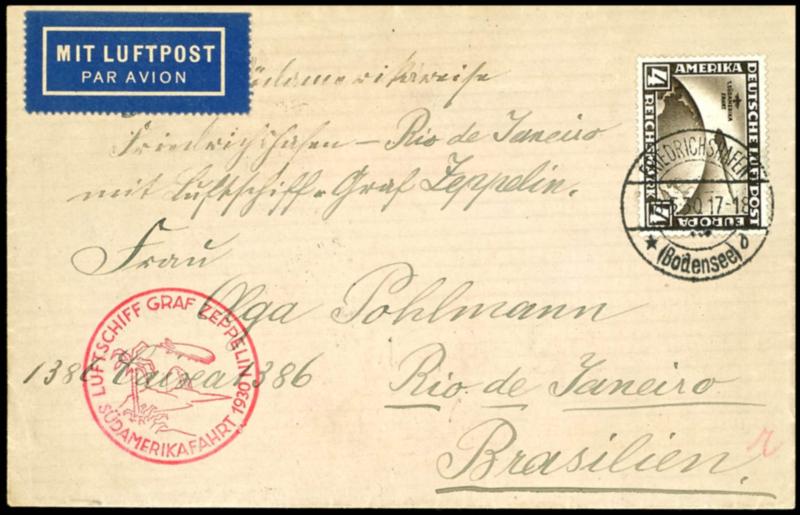 MIT LUFTPOST
PAR AVION
Südamerikareise
Friedrichshafen - Rio de Janeiro
mit Luftschiff "Graf Zeppelin.
Frau
Olga Pohlmann
1386 Caixa 1386
Rio de Janeiro
Brasilien.
4 AMERIKA
DEUTSCHE LUFTPOST
1. SÜDAMERIKA FAHRT
REICHSMARK
EUROPA 4
FRIEDRICHSHAFEN
30.17-18
★ (Bodensee) d
LUFTSCHIFF GRAF ZEPPELIN
SÜDAMERIKAFAHRT 1930